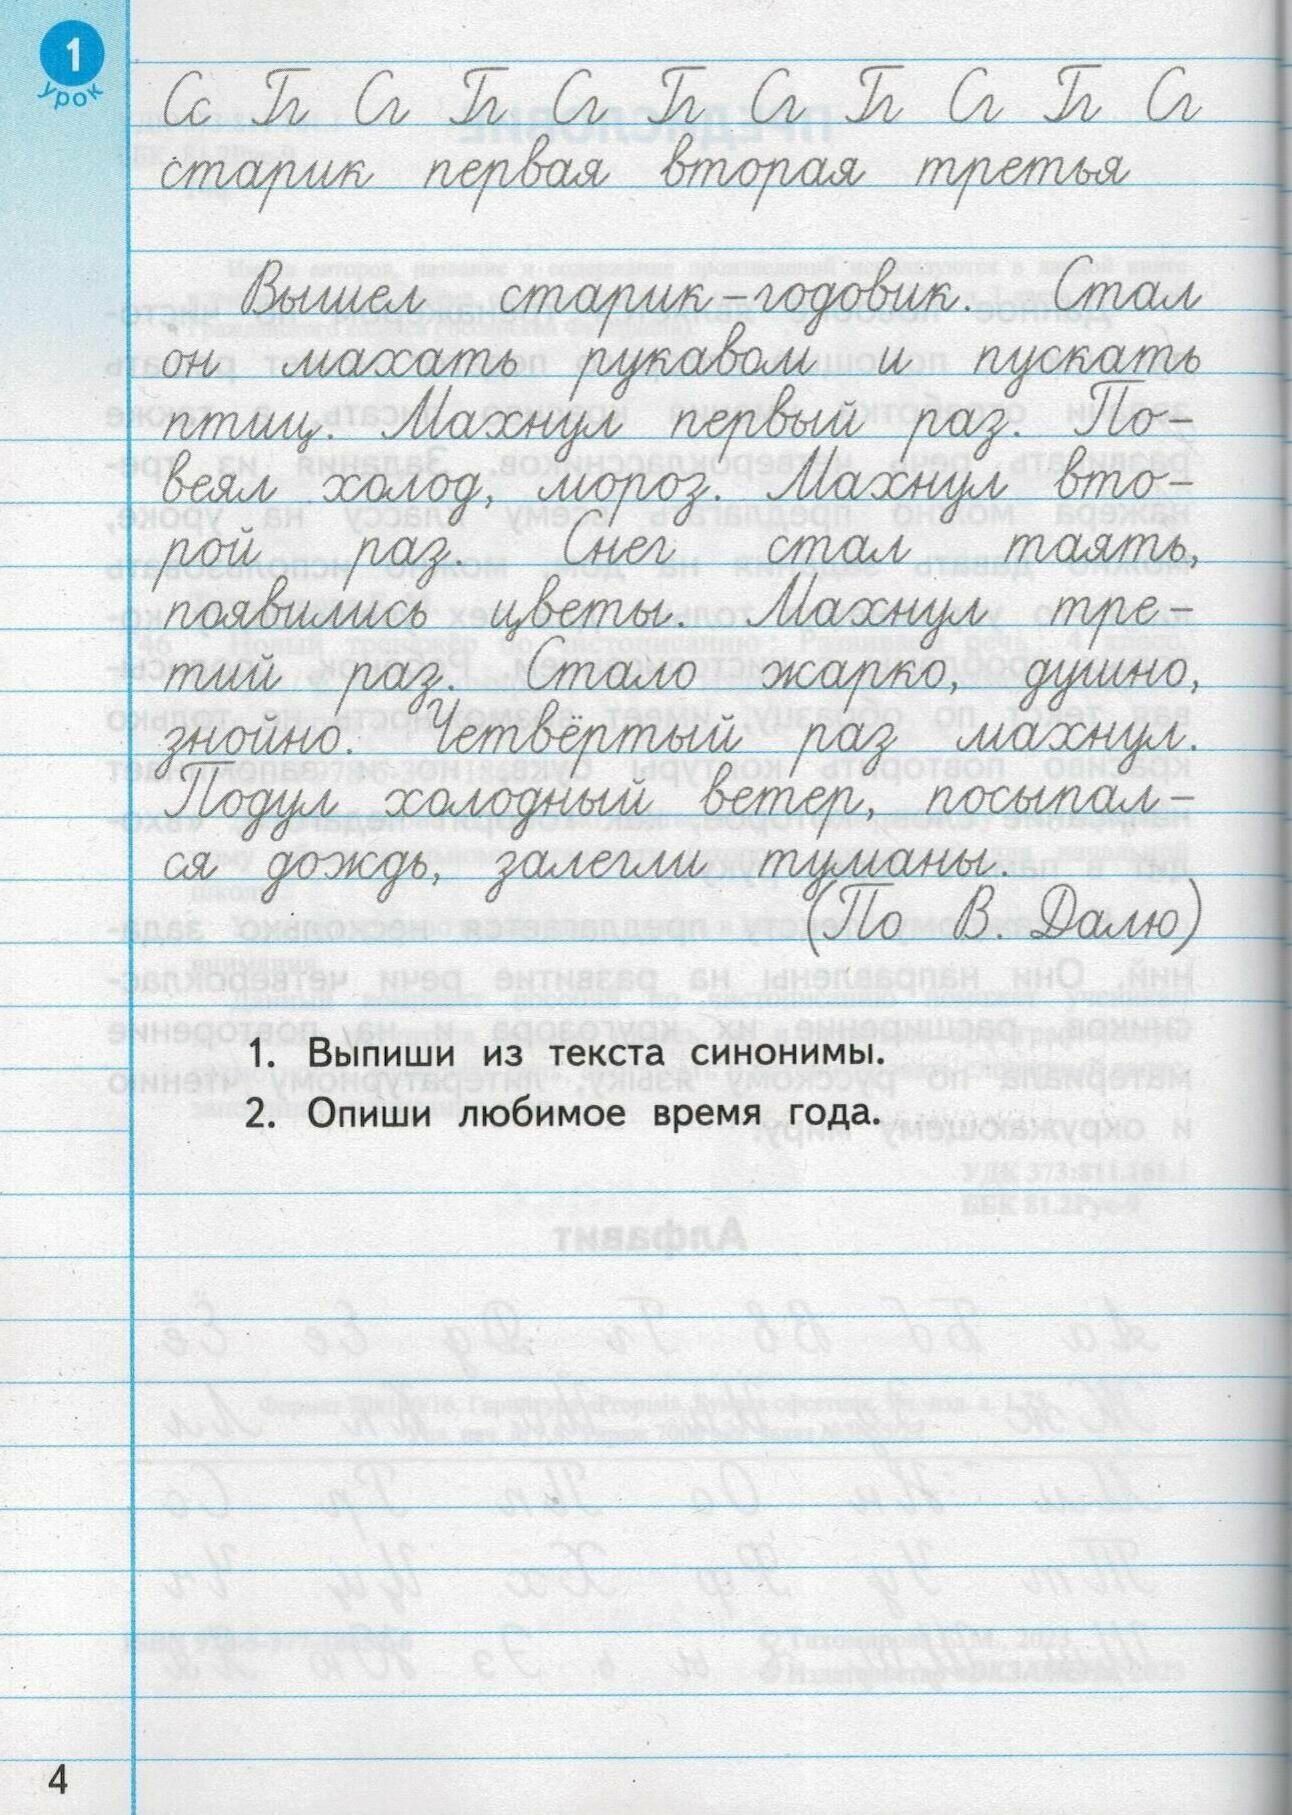 1
урок
Сс Пг Сг Пг Сг Пг Сг Пг Сг Пг Сг
старик первая вторая третья
Вышел старик-годовик. Стал
он махать рукавом и пускать
птиц. Махнул первый раз. По-
веял холод, мороз. Махнул вто-
рой раз. Снег стал таять,
появились цветы. Махнул тре-
тий раз. Стало жарко, душно,
знойно. Четвёртый раз махнул.
Подул холодный ветер, посыпал-
ся дождь, залегли туманы.
(По В. Далю)
1. Выпиши из текста синонимы.
2. Опиши любимое время года.
4